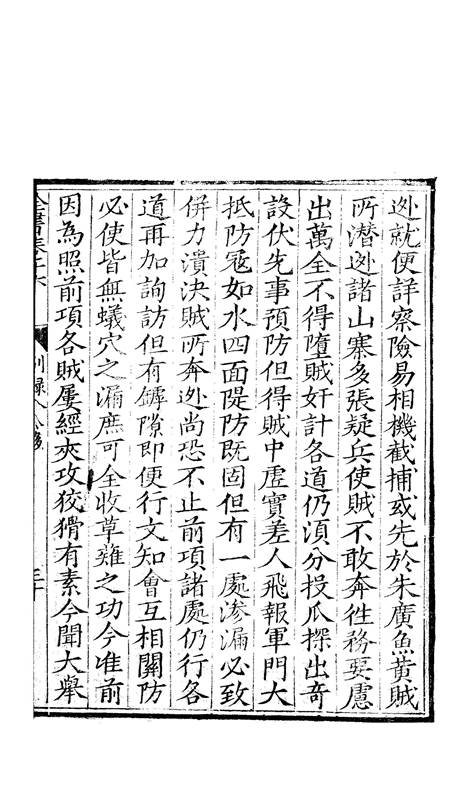 逊就便詳察險易相機截捕或先於朱廣魚黄賊
所潜逊諸山寨多張疑兵使賊不敢奔徃務要慮
出萬全不得墮賊奸計各道仍湏分投爪探出竒
設伏先事預防但得賊中虚實差人飛報軍門大
抵防宼如水四面隄防既固但有一處渗漏必致
併力潰決賊所奔逊尚恐不止前項諸處仍行各
道再加詢訪但有罅隙即便行文知會互相關防
必使皆無蟻穴之漏庶可全收草薙之功今准前
因為照前項各賊屢經夾攻狡猾有素今聞大舉
全書卷二十六
别録
三十